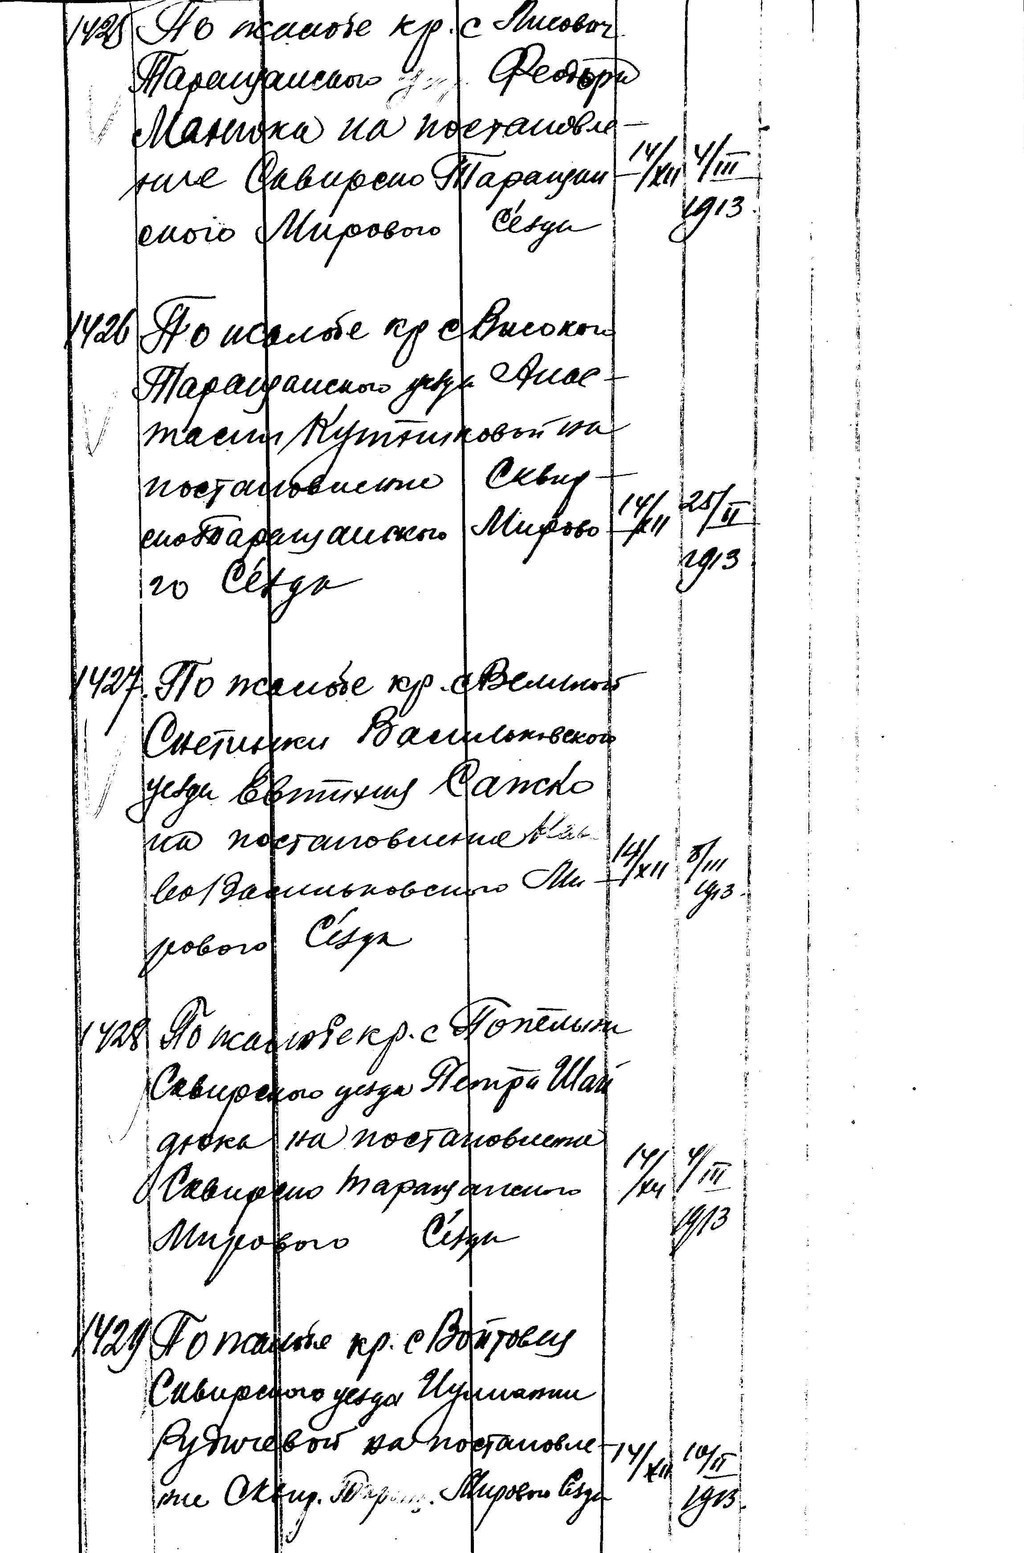 1425 По жалобе кр. с Лисович
Таращанского уез. Феодоры
Манзюка на постановле-
ние Сквирско Таращан 14/XII 4/III
ского Мирового Сѣзда 1913.
1426 По жалобе кр с Высокого
Таращанского уезда Анас-
тасии Кутниковой на
постановление Сквир-
ско Таращанского Мирово 14/XII 25/II
го Сѣзда 1913
1427. По жалобе кр. с Великой
Снетинки Васильковского
уезда Евтихия Сапко
на постановление
во Васильковского Ми- 14/XII 8/III
рового Сѣзда 1913.
1428 По жалобе кр. с Попельни
Сквирского уезда Петра Шай
дюка на постановление
Сквирско Таращанского 14/XII 4/III
Мирового Сѣзда 1913
1429 По жалобе кр. с Войтовец
Сквирского уезда Иулиании
Рубичевой на постановле- 14/XII 10/II
ние Сквир. Таращ. Мирового Сѣзда 1913.